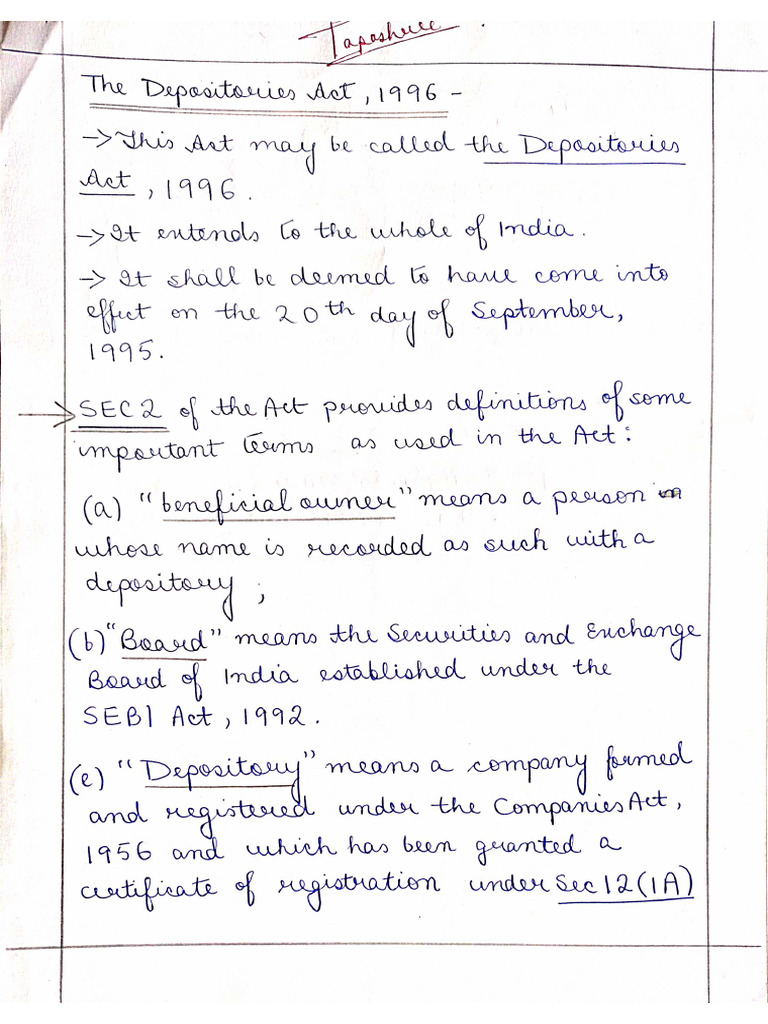 Taposhree
The Depositories Act, 1996 -
→ This Act may be called the Depositories
Act, 1996.
→ It extends to the whole of India.
→ It shall be deemed to have come into
effect on the 20th day of September,
1995.
→ SEC 2 of the Act provides definitions of some
important terms as used in the Act:
(a) "beneficial owner" means a person
whose name is recorded as such with a
depository;
(b) "Board" means the Securities and Exchange
Board of India established under the
SEBI Act, 1992.
(e) "Depository" means a company formed
and registered under the Companies Act,
1956 and which has been granted a
certificate of registration under Sec 12(1A)